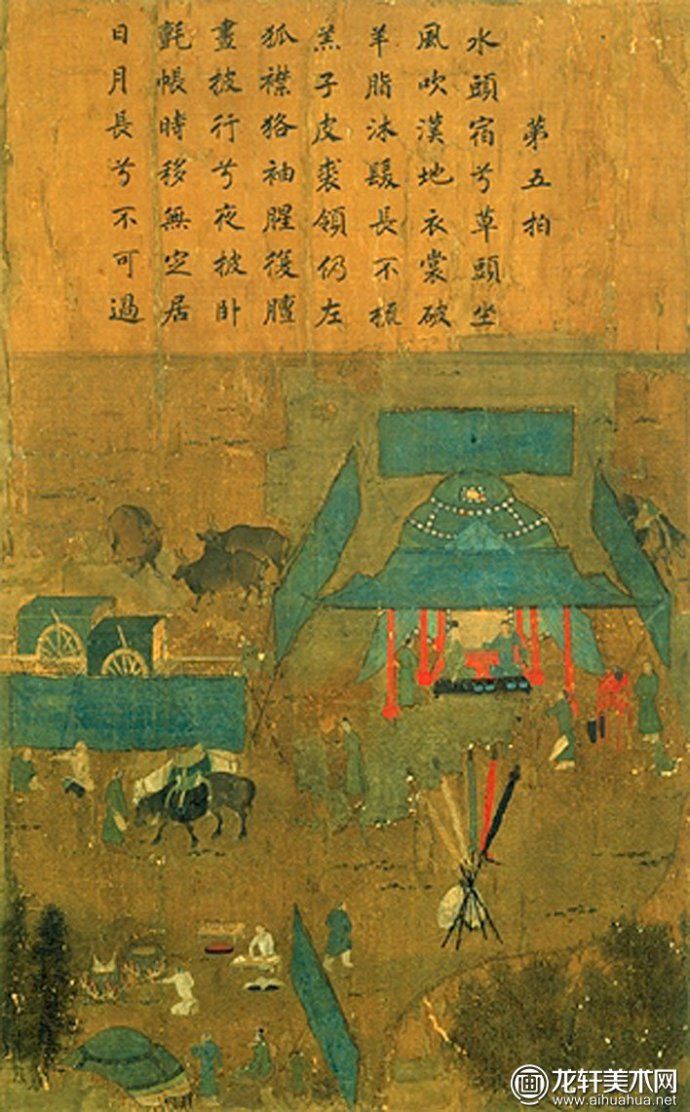 第五拍
水頭宿兮草頭坐
風吹漢地衣裳破
羊脂沐鬂長不梳
羔子皮裘領仍左
狐襟狢袖腥復膻
晝披行兮夜披卧
氈帳時移無定居
日月長兮不可過
画 龙轩美术网
www.aihuahua.net